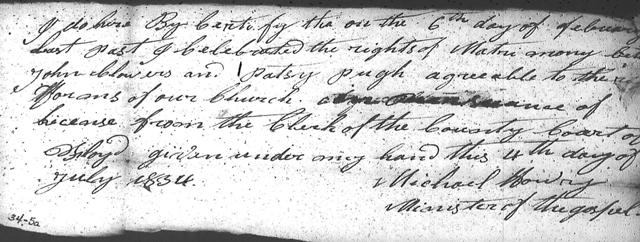 I do here By Certify tha on the 6th day of februar
Last past I Celebrated the rights of Matri mony bet
John Clowers and Patsy pugh agreeable to the
Forms of our Church in pursuance of
License from the Clerk of the County Court of
Floyd given under my hand this 4th day of
July 1834 Michael Howry
Minister of the gospel
34-5a